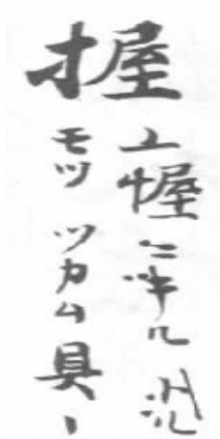 握
上幄 ニキル
モツ ツカム 具